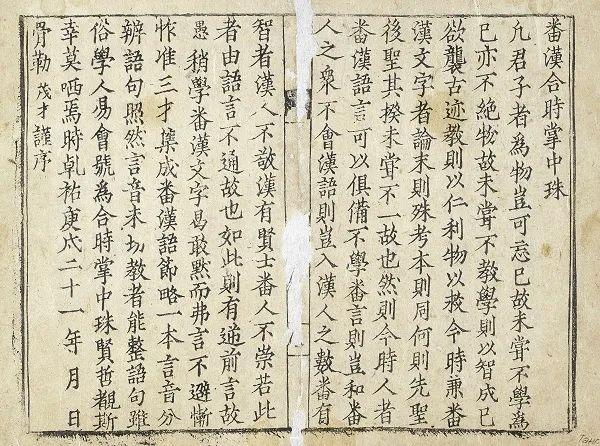 番漢合時掌中珠
凢君子者為物豈可忘已故未甞不學為
已亦不絕物故未甞不教學則以智成已
欲襲古迹教則以仁利物以救今時兼番
漢文字者論末則殊考本則同何則先聖
後聖其揆未甞不一故也然則今時人者
番漢語言可以俱備不學番言則豈和番
人之衆不會漢語則豈入漢人之數番有
智者漢人不敬漢有賢士番人不崇若此
者由語言不通故也如此則有逆前言故
愚稍學番漢文字曷敢默而弗言不避慚
怍准三才集成番漢語節略一本言音分
辨語句照然言音未切教者能整語句雖
俗學人易會號為合時掌中珠賢哲覩斯
幸莫哂焉時乹祐庚戌二十一年 月 日
骨勒 茂才 謹序